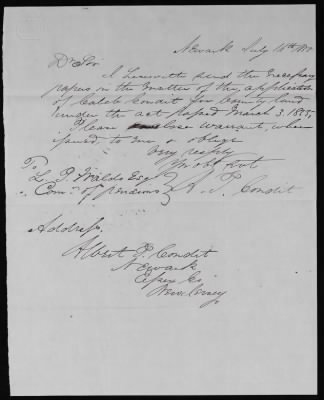 Newark July 11th
Dr Sir
I herewith send the necessary
papers in the matter of the application
of Caleb Condit for bounty land
under the act passed March 3. 1855,
Please warrant, when
issued, to me & oblige
Very respty
Yr obt svt
A. P. Condit
To
L. P. Waldo Esq
Comr of pensions
Address.
Albert P. Condit
Newark
Essex Co
New Jersey